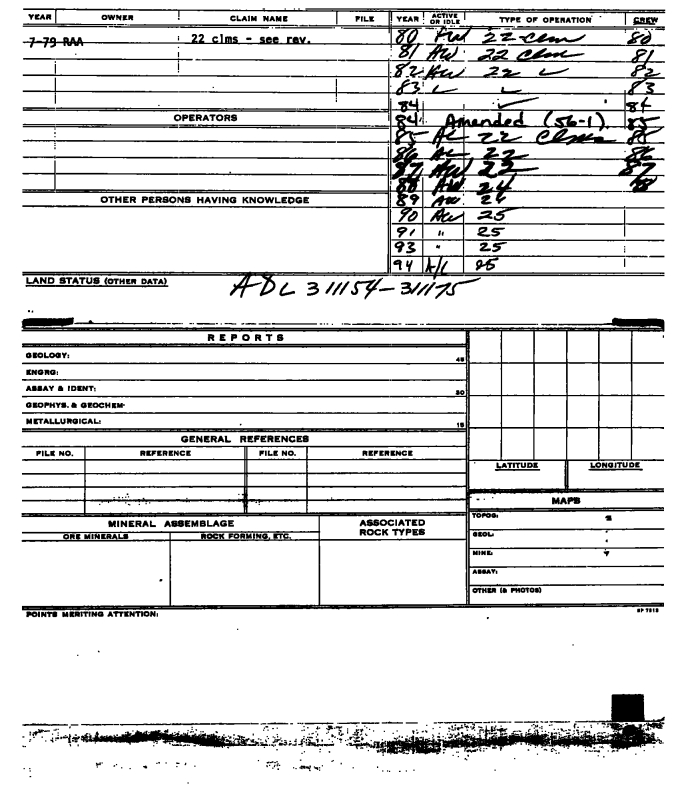 YEAR OWNER CLAIM NAME FILE YEAR ACTIVE OR IDLE TYPE OF OPERATION CREW
7-79 RAA 22 clms - see rev. 80 22 clm 80
81 AW 22 clm 81
82 AW 22 ✓ 82
83 ✓ ✓ 83
84 ✓ 84
OPERATORS 84 Amended (56-1) 85
85 22 Clms
86 22 86
87 AW 22 87
88 AW 24 88
OTHER PERSONS HAVING KNOWLEDGE 89 AW 24
90 AW 25
91 " 25
93 " 25
94 A/L 25
LAND STATUS (OTHER DATA) ADL 311154-311175
REPORTS
GEOLOGY: 45
ENGRG:
ASSAY & IDENT: 30
GEOPHYS. & GEOCHEM-
METALLURGICAL: 15
GENERAL REFERENCES
FILE NO. REFERENCE FILE NO. REFERENCE
LATITUDE LONGITUDE
MAPS
MINERAL ASSEMBLAGE ASSOCIATED ROCK TYPES
ORE MINERALS ROCK FORMING, ETC.
TOPOG:
GEOL:
MINE:
ASSAY:
OTHER (& PHOTOS)
POINTS MERITING ATTENTION: